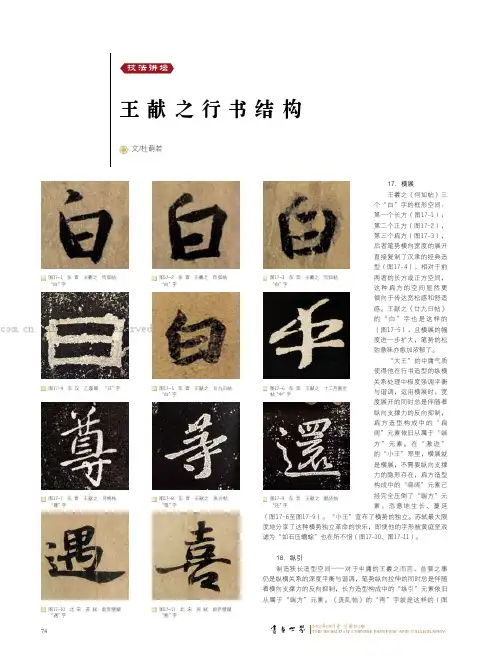 技法讲坛
王献之行书结构
文/杜萌若
17. 横展
王羲之《何如帖》三
个“白”字的框形空间，
第一个长方（图17-1），
第二个正方（图17-2），
第三个扁方（图17-3），
后者笔势横向宽度的展开
直接复制了汉隶的经典造
型（图17-4），相对于前
两者的长方或正方空间，
这种扁方的空间显然更
倾向于传达宽松感和舒适
感。王献之《廿九日帖》
的“白”字也是这样的
（图17-5），且横展的幅
度进一步扩大，笔势的松
弛意味亦愈加浓郁了。
“大王”的中庸气质
使得他在行书造型的纵横
关系处理中极度强调平衡
与谐调，运用横展时，宽
度展开的同时总是伴随着
纵向支撑力的反向抑制，
扁方造型构成中的“扁
阔”元素依旧从属于“端
方”元素。在“激进”
的“小王”那里，横展就
是横展，不需要纵向支撑
力的隐形存在，扁方造型
构成中的“扁阔”元素已
经完全压倒了“端方”元
素，恣意地生长、蔓延
（图17-6至图17-9）。“小王”宣布了横势的独立。苏轼最大限
度地分享了这种横势独立革命的快乐，即使他的字形被黄庭坚戏
谑为“如石压蟾蜍”也在所不惜（图17-10、图17-11）。
18. 纵引
制造狭长造型空间——对于中庸的王羲之而言，首要之事
仍是纵横关系的深度平衡与谐调，笔势纵向拉伸的同时总是伴随
着横向支撑力的反向抑制，长方造型构成中的“纵引”元素依旧
从属于“端方”元素，《丧乱帖》的“再”字就是这样的（图
图17-1 东 晋 王羲之 何如帖
“白”字
图17-2 东 晋 王羲之 何如帖
“白”字
图17-3 东 晋 王羲之 何如帖
“白”字
图17-4 东 汉 乙瑛碑 “曰”字
图17-5 东 晋 王献之 廿九日帖
“白”字
图17-6 东 晋 王献之 十二月割至
帖“中”字
“尊”字
“等”字
“还”字
图17-10 北 宋 苏 轼
“遇”字
图17-11 北 宋 苏 轼
“喜”字
74
書畫世界
THE WORLD OF CHINESE PAINTING AND CALLIGRAPHY